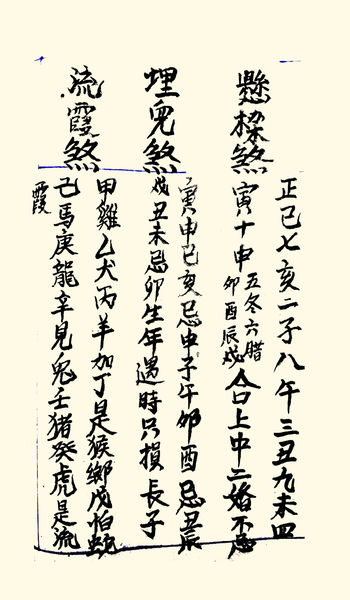 懸樑煞
正巳七亥二子八午三丑九未四
寅十申五冬六腊
卯酉辰戌
合上中二婚不忌
埋兒煞
寅申巳亥忌申子午卯酉忌丑辰
戌丑未忌卯生年遇時只損長子
流霞煞
甲雞乙犬丙羊加丁是猴鄉戊怕蛇
己馬庚龍辛見兔壬猪癸虎是流
霞